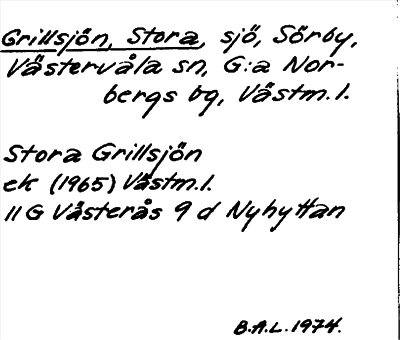 Grillsjön, Stora, sjö, Sörby,
Västervåla sn, G:a Nor-
bergs bg, Västm.l.
Stora Grillsjön
ek (1965) Västm.l.
11 G Västerås 9 d Nyhyttan
B.A.L. 1974.